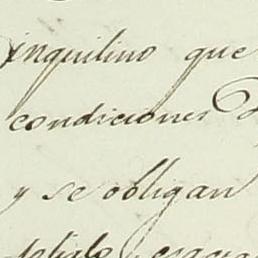 inquilino que
condiciones
y se obligan